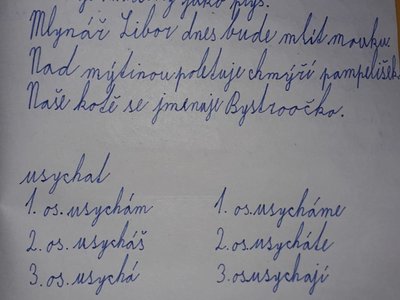 jako plyš.
Mlynář Libor dnes bude mlít mouku.
Nad mýtinou poletuje chmýří pampelišek.
Naše kotě se jmenuje Bystroočko.
usychat
1. os. usychám 1. os. usycháme
2. os. usycháš 2. os. usycháte
3. os. usychá 3. os usychají